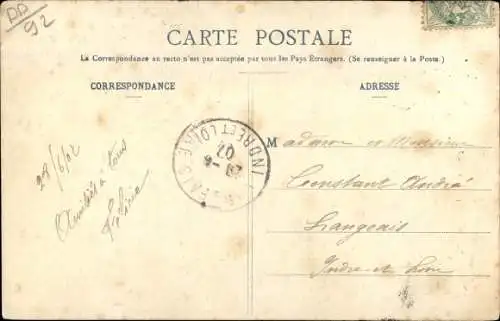 DD
92
CARTE POSTALE
La Correspondance au recto n'est pas acceptée par tous les Pays Étrangers. (Se renseigner à la Poste.)
CORRESPONDANCE
ADRESSE
Amitiés à tous
INDRE ET LOIRE
Madame et Monsieur
Constant André
Langeais
Indre-et-Loire